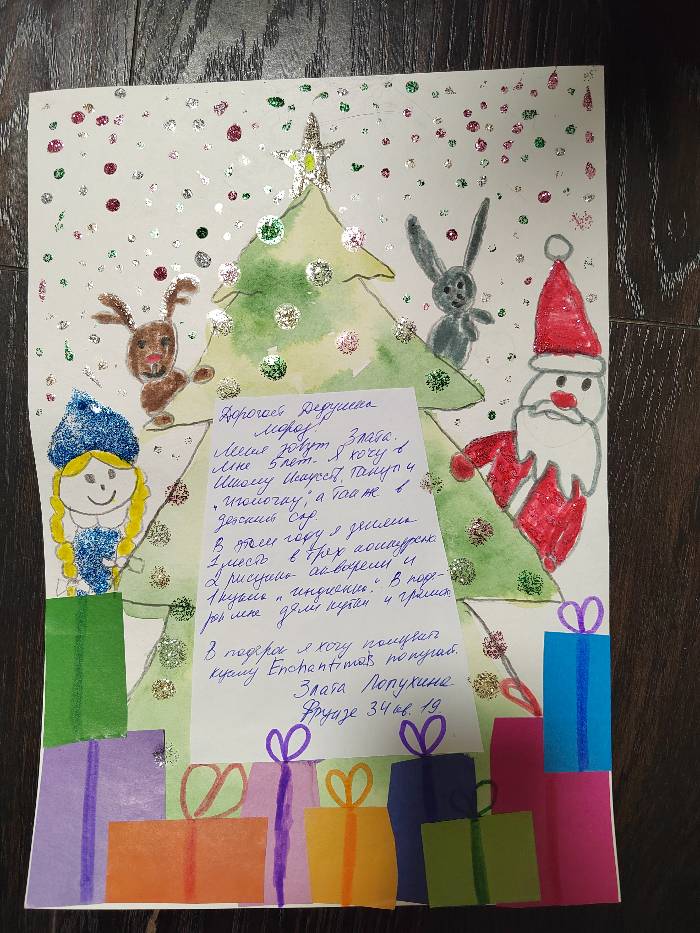 Дорогой Дедушка
Мороз!
Меня зовут Злата.
Мне 5 лет. Я хочу в
Школу Искусств, танцы и
"Иголочку", а также в
детский сад.
В этом году я заняла
1 место в трёх конкурсах
2 рисунка акварели и
1 кукла "индианка". В пода-
рок мне дали кубки и грамоты
В подарок я хочу получить
куклу Enchantimals попугай.
Злата Лопухина
Фрунзе 34 кв. 19